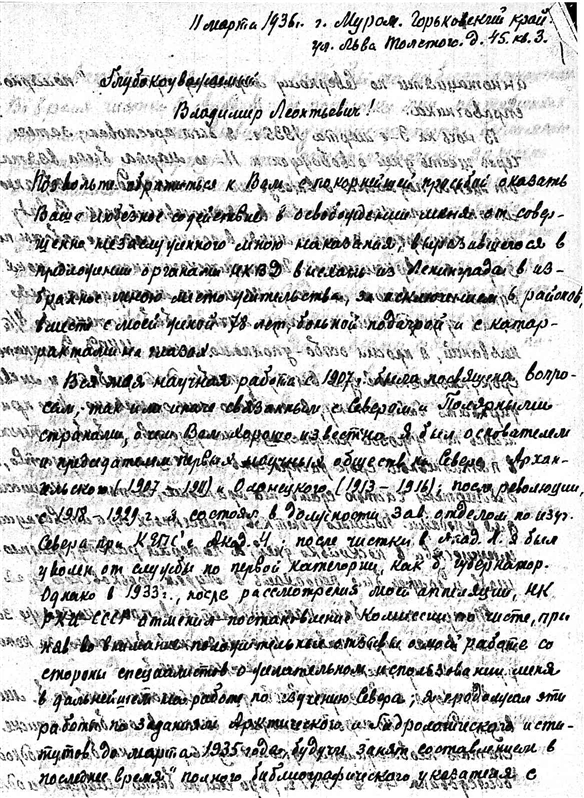 11 марта 1936 г. г. Муром. Горьковский край.
ул. Льва Толстого. д. 45. кв. 3.
Глубокоуважаемый
Владимир Леонтьевич!
Позвольте обратиться к Вам с покорнейшей просьбой оказать
Ваше любезное содействие в освобождении меня от совер-
шенно незаслуженного мною наказания, выразившегося в
предложении органами НКВД выехать из Ленинграда в из-
бранное мною место жительства, за исключением 6 районов,
вместе с моей женой 78 лет, больной подагрой и с катар-
рактами на глазах.
Вся моя научная работа с 1907 г. была посвящена вопро-
сам, так или иначе связанным с Севером и Полярными
странами, о чем Вам хорошо известно. Я был основателем
и председателем первых научных обществ на Севере Архан-
гельского (1907 – 1911) и Олонецкого (1913 – 1916); после революции,
с 1918 – 1929 г. я состоял в должности зав. отделом по изуч.
Севера при КЕПС'е Акад. Н.; после чистки в Акад. Н. я был
уволен от службы по первой категории, как б. губернатор.
Однако в 1933 г., после рассмотрения моей аппеляции, НК
РКИ СССР отменил постановление Комиссии по чистке, при
няв во внимание положительные отзывы о моей работе со
стороны специалистов о желательном использовании меня
в дальнейшем на работе по изучению Севера; я продолжал эти
работы по заданиям Арктического и Гидрологического инсти-
тутов до марта 1935 года, будучи занят составлением в
последнее время "полного библиографического указателя с